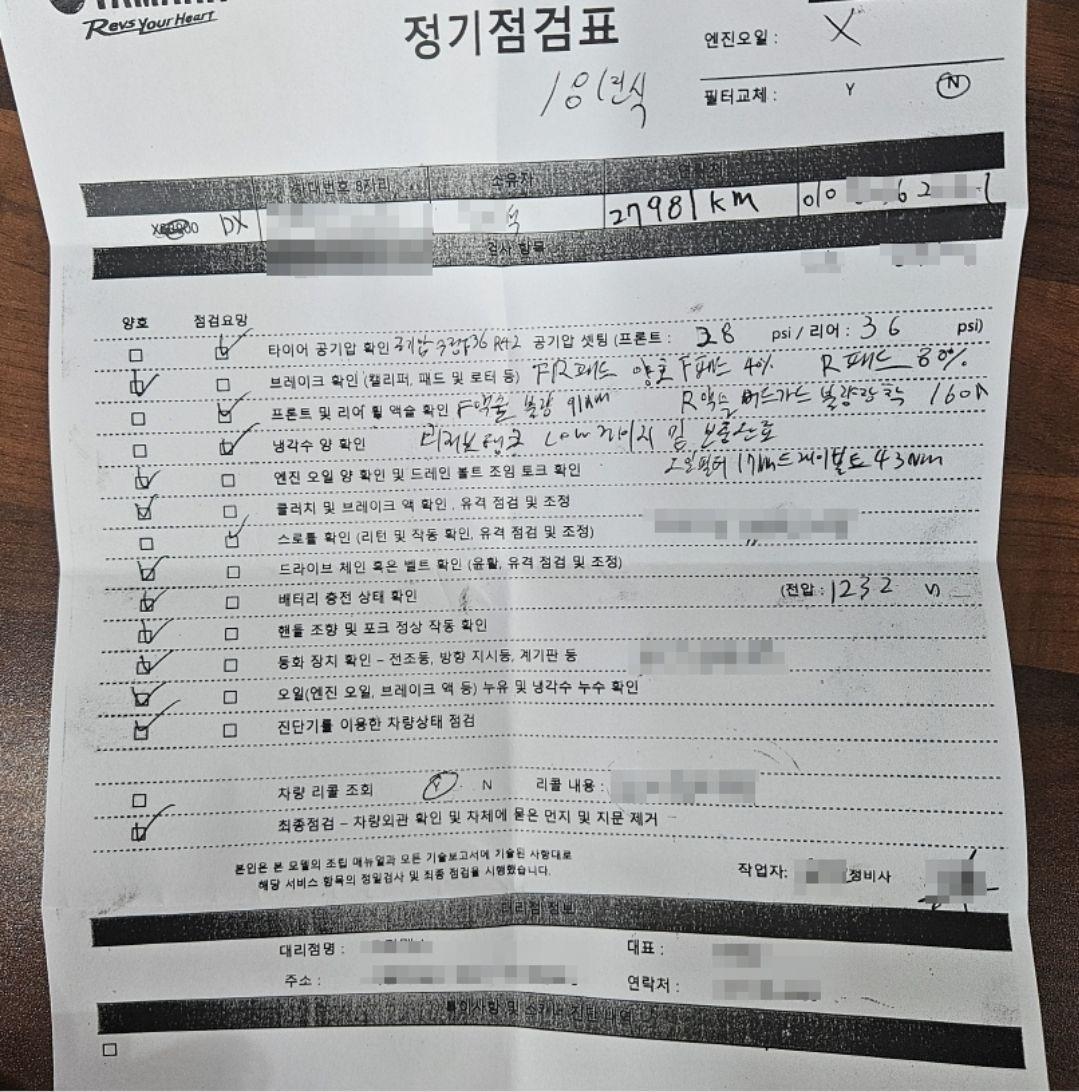 YAMAHA
Revs Your Heart
정기점검표
엔진오일 : X
필터교체 : Y N
차대번호 8자리 소유자 연락처
DX 27981 km 010 62
검사 항목
양호 점검요망
타이어 공기압 확인 36 R42 공기압 셋팅 (프론트 : 28 psi / 리어 : 36 psi)
브레이크 확인 (캘리퍼, 패드 및 로터 등) FR패드 양호 F패드 40% R 패드 80%
프론트 및 리어 휠 액슬 확인 F액슬 불량 91Nm R액슬 160N
냉각수 양 확인 Low 및 보충완료
엔진 오일 양 확인 및 드레인 볼트 조임 토크 확인 오일필터 17Nm 드레인볼트 43Nm
클러치 및 브레이크 액 확인 , 유격 점검 및 조정
스로틀 확인 (리턴 및 작동 확인, 유격 점검 및 조정)
드라이브 체인 혹은 벨트 확인 (윤활, 유격 점검 및 조정)
배터리 충전 상태 확인 (전압 : 1232 V)
핸들 조향 및 포크 정상 작동 확인
등화 장치 확인 – 전조등, 방향 지시등, 계기판 등
오일(엔진 오일, 브레이크 액 등) 누유 및 냉각수 누수 확인
진단기를 이용한 차량상태 점검
차량 리콜 조회 Y N 리콜 내용 :
최종점검 – 차량외관 확인 및 차체에 묻은 먼지 및 지문 제거
본인은 본 모델의 조립 매뉴얼과 모든 기술보고서에 기술된 사항대로
해당 서비스 항목의 정밀검사 및 최종 점검을 시행했습니다.
작업자: 정비사
대리점 정보
대리점명 : 대표 :
주소 : 연락처 :
특이사항 및 스캐너 진단 내역